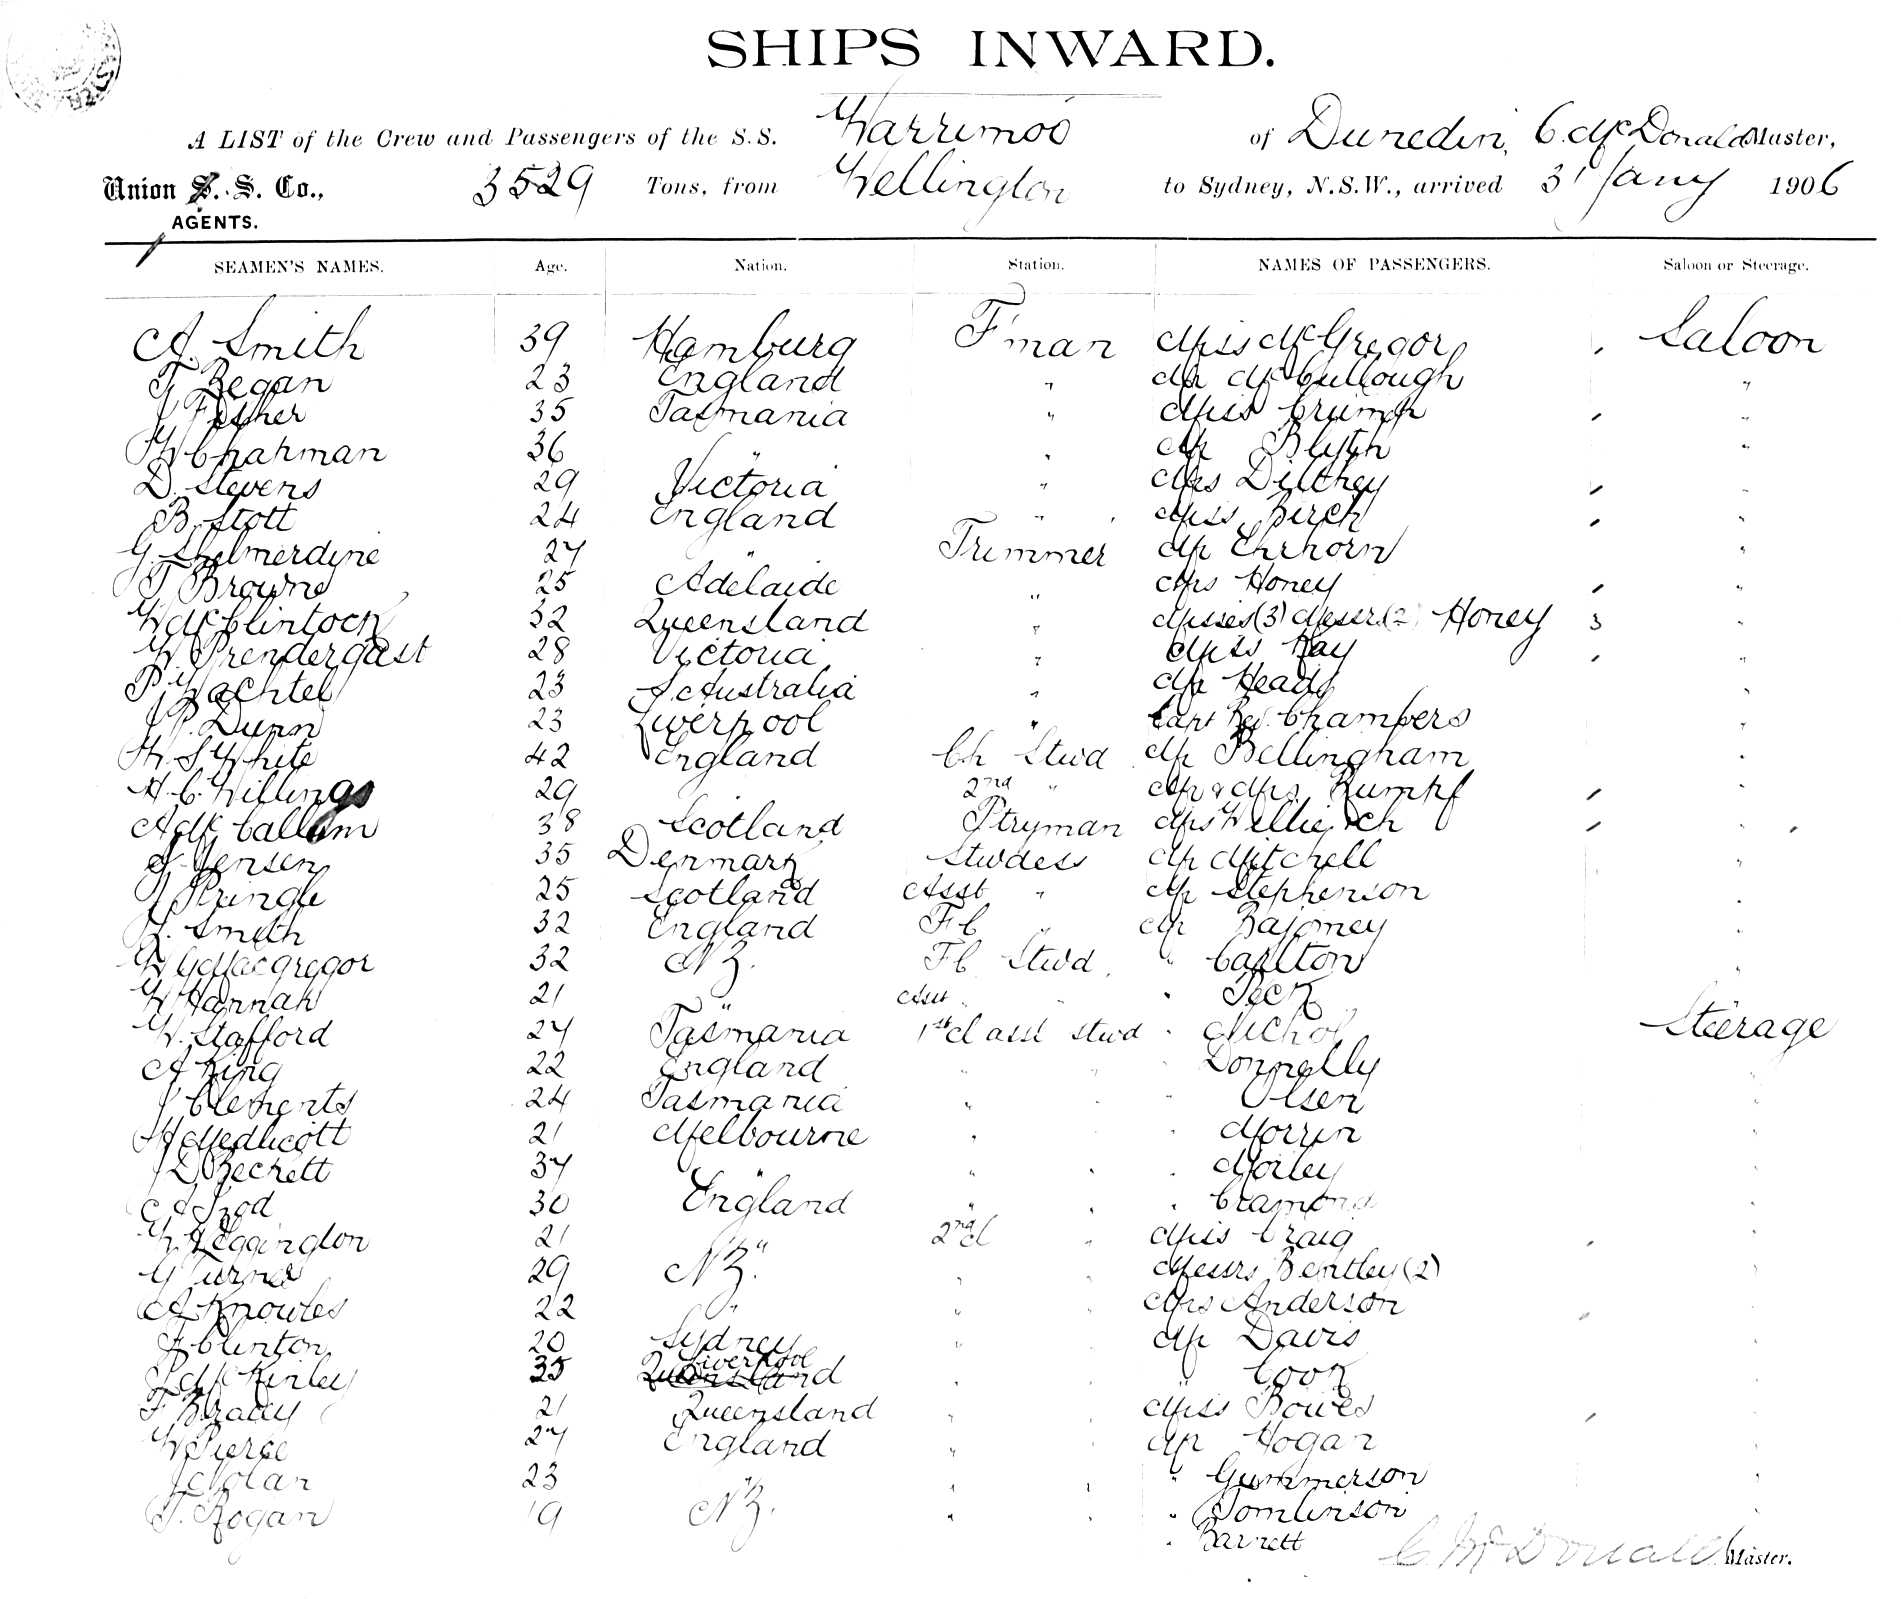 SHIPS INWARD.
A LIST of the Crew and Passengers of the S.S. Warrimoo of Dunedin, C. McDonald Master,
Union S. S. Co., 3529 Tons, from Wellington to Sydney, N.S.W., arrived 31 Jany 1906
AGENTS.
SEAMEN'S NAMES. Age. Nation. Station. NAMES OF PASSENGERS. Saloon or Steerage.
A. Smith 39 Hamburg F'man Miss McGregor Saloon
T Regan 23 England " Mr McCullough "
J Fisher 35 Tasmania " Miss Crump "
W Chapman 36 " " Mr Blyth "
D. Stevens 29 Victoria " Mrs Dilthey "
B. Stott 24 England " Miss Birch "
G Shelmerdine 27 " Trimmer Mr Ehrhorn "
T Browne 25 Adelaide " Mrs Honey "
W McClintock 32 Queensland " Misses (3) Messrs (2) Honey 3
W Prendergast 28 Victoria " Miss Hay "
P. Wachtel 23 S. Australia " Mr Heads "
J P. Dunn 23 Liverpool " Capt Rev. Chambers "
W. S White 42 England Ch Stwd Mr Bellingham "
H. C. Willings 29 2nd " Mr & Mrs Rumpf "
A McCallum 38 Scotland P'tryman Mrs "
J. Jensen 35 Denmark Stwdess Mr Mitchell "
J Pringle 25 Scotland Asst " Mr Stephenson "
Smith 32 England F C " Mr "
W G MacGregor 32 N Z. F C Stwd " Carlton "
W Hannah 21 " Asst " " " Peck
W. Stafford 27 Tasmania 1st Cl asst stwd " Nichol Steerage
A King 22 England " " Donnelly "
J Clements 24 Tasmania " " Olsen "
H Medlicott 21 Melbourne " " Morrin "
J D Beckett 37 " " " " Morley "
30 England " " " Cramond "
W. Leggington 21 " 2nd Cl " Miss Craig "
G Turner 29 N Z. " " Messrs Bentley (2) "
A Knowles 22 " " " Mrs Anderson "
J Clinton 20 Sydney " " Mr Davis "
J McKinley 35 Liverpool " " " Cook "
F Brady 21 Queensland " " Miss Bowes "
W Pierce 27 England " " Mr Hogan "
J Nolan 23 " " " " Gummerson "
T. Hogan 19 N Z. " " " Tomlinson "
" Barrett
C McDonald Master.